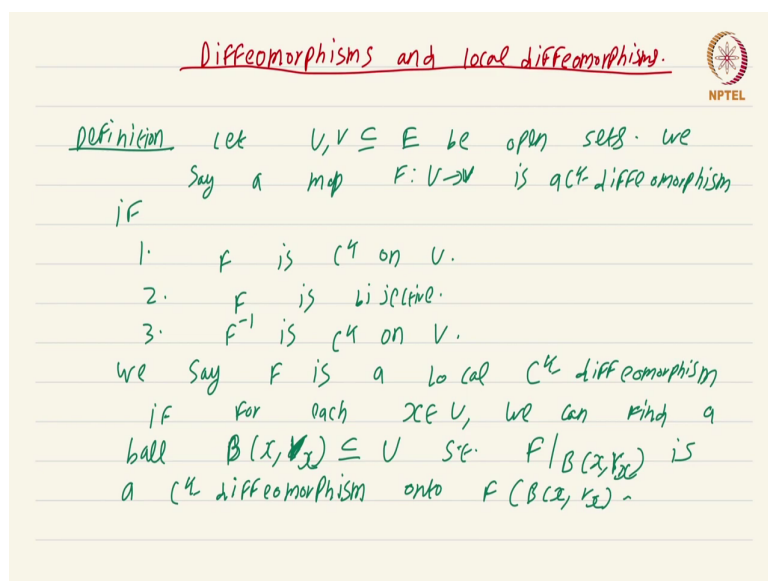 Diffeomorphisms and local diffeomorphisms.
NPTEL
Definition Let U, V ⊆ E be open sets. We
Say a map F: U→V is a C^k diffeomorphism
if
1. F is C^k on U.
2. F is bijective.
3. F^{-1} is C^k on V.
We say F is a local C^k diffeomorphism
if for each x ∈ U, we can find a
ball B(x, r_x) ⊆ U s.t. F|_{B(x, r_x)} is
a C^k diffeomorphism onto F(B(x, r_x).